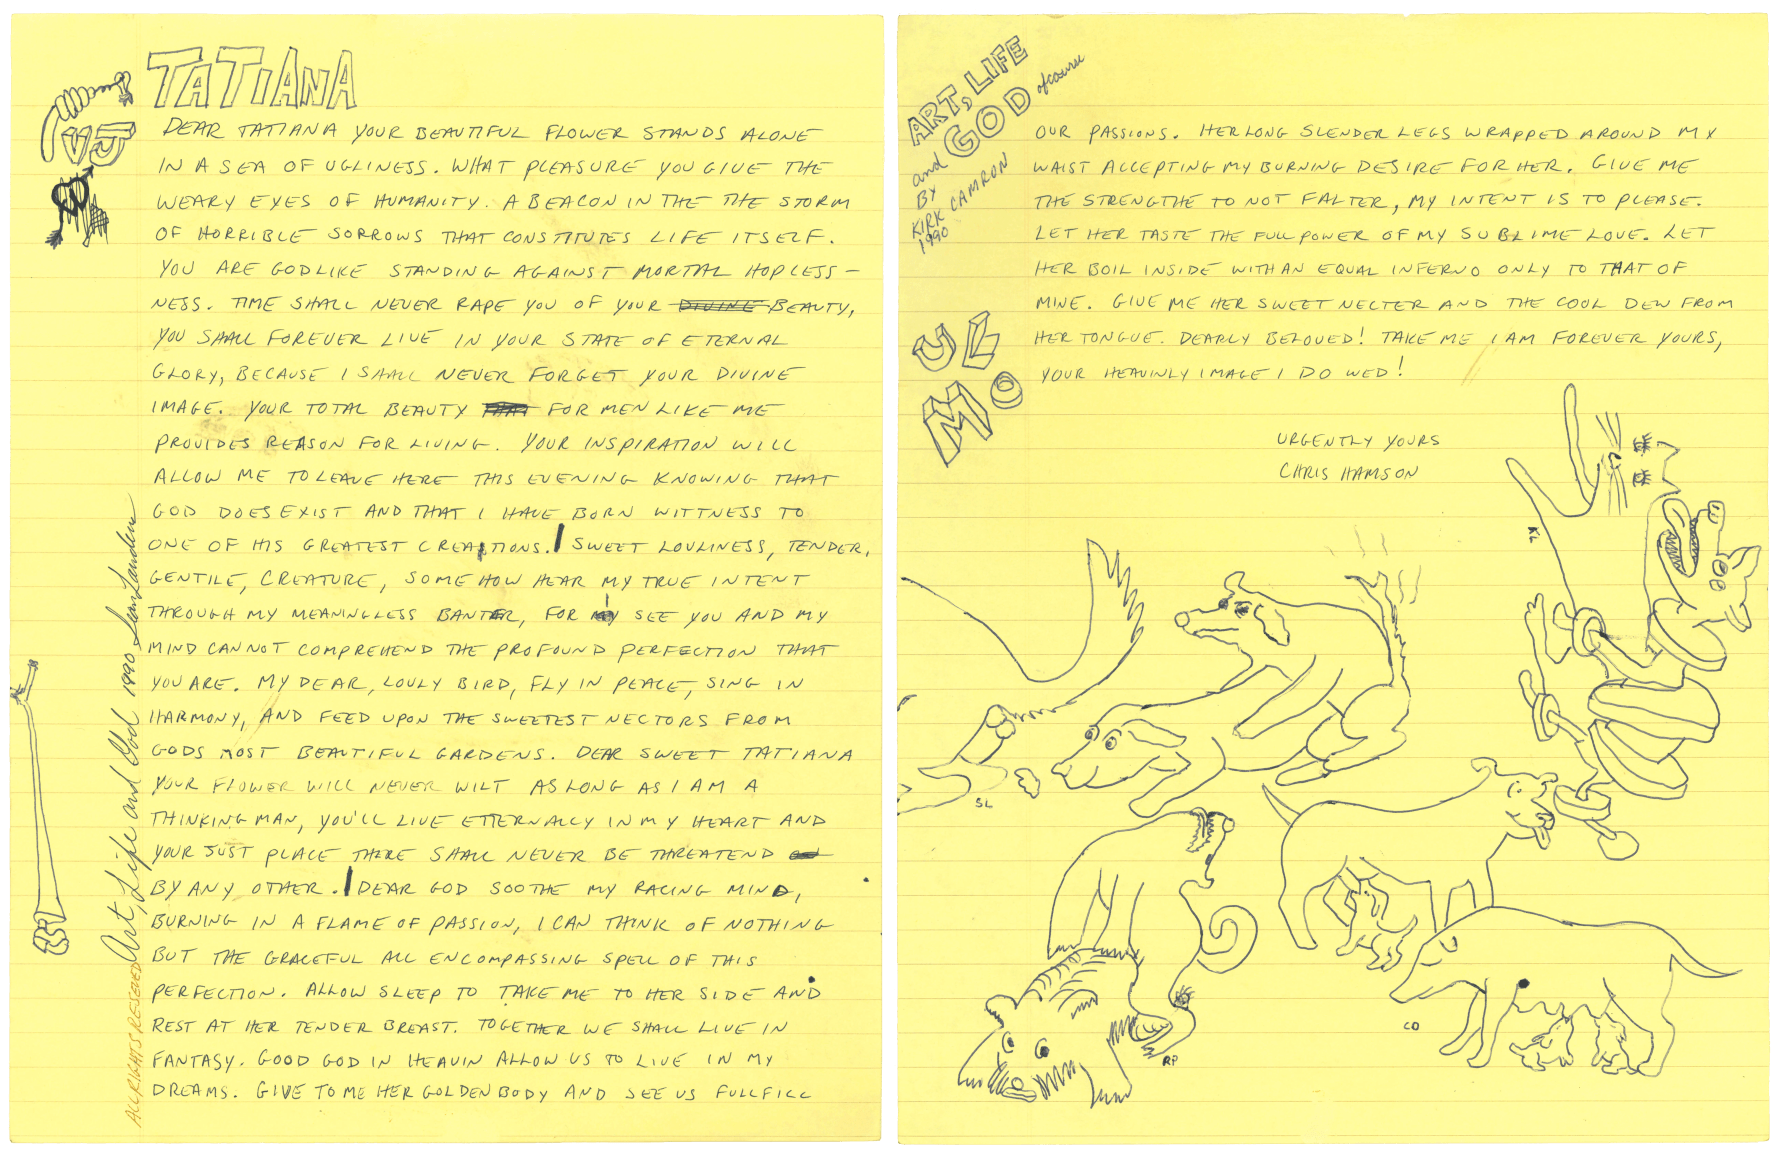 TATIANA
DEAR TATIANA YOUR BEAUTIFUL FLOWER STANDS ALONE
IN A SEA OF UGLINESS. WHAT PLEASURE YOU GIVE THE
WEARY EYES OF HUMANITY. A BEACON IN THE THE STORM
OF HORRIBLE SORROWS THAT CONSTITUTES LIFE ITSELF.
YOU ARE GODLIKE STANDING AGAINST MORTAL HOPLESS-
NESS. TIME SHALL NEVER RAPE YOU OF YOUR DIVINE BEAUTY,
YOU SHALL FOREVER LIVE IN YOUR STATE OF ETERNAL
GLORY, BECAUSE I SHALL NEVER FORGET YOUR DIVINE
IMAGE. YOUR TOTAL BEAUTY THAT FOR MEN LIKE ME
PROVIDES REASON FOR LIVING. YOUR INSPIRATION WILL
ALLOW ME TO LEAVE HERE THIS EVENING KNOWING THAT
GOD DOES EXIST AND THAT I HAVE BORN WITTNESS TO
ONE OF HIS GREATEST CREATIONS. SWEET LOVLINESS, TENDER,
GENTILE, CREATURE, SOMEHOW HEAR MY TRUE INTENT
THROUGH MY MEANINGLESS BANTER, FOR I SEE YOU AND MY
MIND CANNOT COMPREHEND THE PROFOUND PERFECTION THAT
YOU ARE. MY DEAR, LOVLY BIRD, FLY IN PEACE, SING IN
HARMONY, AND FEED UPON THE SWEETEST NECTORS FROM
GODS MOST BEAUTIFUL GARDENS. DEAR SWEET TATIANA
YOUR FLOWER WILL NEVER WILT AS LONG AS I AM A
THINKING MAN, YOU'LL LIVE ETTERNALLY IN MY HEART AND
YOUR JUST PLACE THERE SHALL NEVER BE THREATEND
BY ANY OTHER. DEAR GOD SOOTHE MY RACING MIND,
BURNING IN A FLAME OF PASSION, I CAN THINK OF NOTHING
BUT THE GRACEFUL ALL ENCOMPASSING SPELL OF THIS
PERFECTION. ALLOW SLEEP TO TAKE ME TO HER SIDE AND
REST AT HER TENDER BREAST. TOGETHER WE SHALL LIVE IN
FANTASY. GOOD GOD IN HEAVIN ALLOW US TO LIVE IN MY
DREAMS. GIVE TO ME HER GOLDEN BODY AND SEE US FULLFILL
ALL RIGHTS RESEVED Art, Life and God 1990 Sean Landers
ART, LIFE
and GOD of course
BY
KIRK CAMRON
1990
UL
MO
OUR PASSIONS. HER LONG SLENDER LEGS WRAPPED AROUND MY
WAIST ACCEPTING MY BURNING DESIRE FOR HER. GIVE ME
THE STRENGTHE TO NOT FALTER, MY INTENT IS TO PLEASE.
LET HER TASTE THE FULL POWER OF MY SUBLIME LOVE. LET
HER BOIL INSIDE WITH AN EQUAL INFERNO ONLY TO THAT OF
MINE. GIVE ME HER SWEET NECTER AND THE COOL DEW FROM
HER TONGUE. DEARLY BELOVED! TAKE ME I AM FOREVER YOURS,
YOUR HEAVINLY IMAGE I DO WED!
URGENTLY YOURS
CHRIS HAMSON
KL
SL
RP
CO